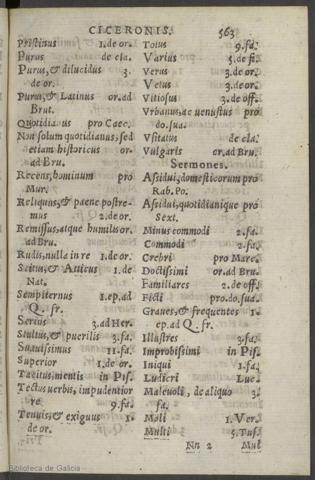 CICERONIS. 563
Pristinus 1. de or.
Purus de cla.
Purus, & dilucidus 3.
de or.
Purus, & Latinus or. ad
Brut.
Quotidianus pro Caec.
Non solum quotidianus, sed
etiam historicus or.
ad Bru.
Recens, hominum pro
Mur.
Reliquus, & paene postre-
mus 2. de or.
Remissus, atque humilis or.
ad Bru.
Rudis, nulla in re 1. de or.
Scitus, & Atticus 1. de
Nat.
Sempiternus 1. ep. ad
Q. fr.
Serius 3. ad Her.
Stultus, & puerilis 3. fa.
Suauissimus 11. fa.
Superior 1. de or.
Tacitus, mentis in Pis.
Tectus verbis, impudentior
re 9. fa.
Tenuis, & exiguus 1.
de or.
Totus 9. fa.
Varius 5. de fi.
Verus 3. de or.
Vetus 3. de or.
Vitiosus 3. de off.
Vrbanus, ac venustus pro
do. sua.
Vsitatus de cla.
Vulgaris or. ad Bru.
Sermones.
Assidui, domesticorum pro
Rab. Po.
Assidui, quotidianique pro
Sext.
Minus commodi 2. fa.
Commodi 2. fa.
Crebri pro Marc.
Doctissimi or. ad Bru.
Familiares 2. de off.
Ficti pro. do. sua.
Graues, & frequentes 1.
ep. ad Q. fr.
Illustres 3. fa.
Improbissimi in Pis.
Iniqui 1. fa.
Ludicri Luc.
Maleuoli, de aliquo 3.
fa.
Mali 1. Ver.
Multi 5. Tus.
Nn 2 Mul
Biblioteca de Galicia